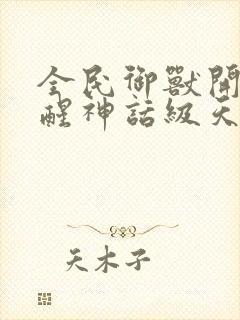 全民御獸開
醒神話級天
天木子